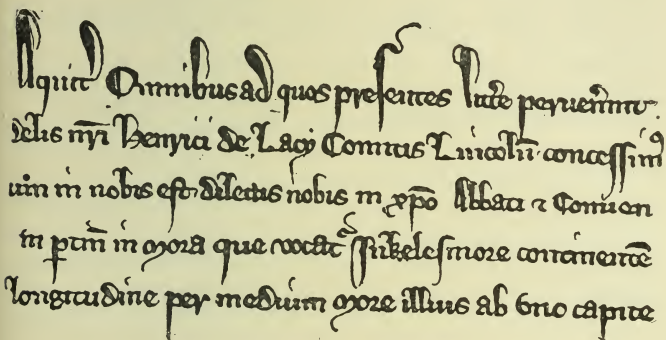 Aquit̄ Omnibus ad quos presentes littē peruen̄int
delis nr̄i Henrici de Lacy Comitis Lincoln̄ concessimꝰ
um̄ in nobis est dilectis nobis in xp̄o Abbati ⁊ Conuen
in ꝑtin̄ in mora que vocat̄ Inkelesmore continentē
longitudine per medium more illius ab vno capite